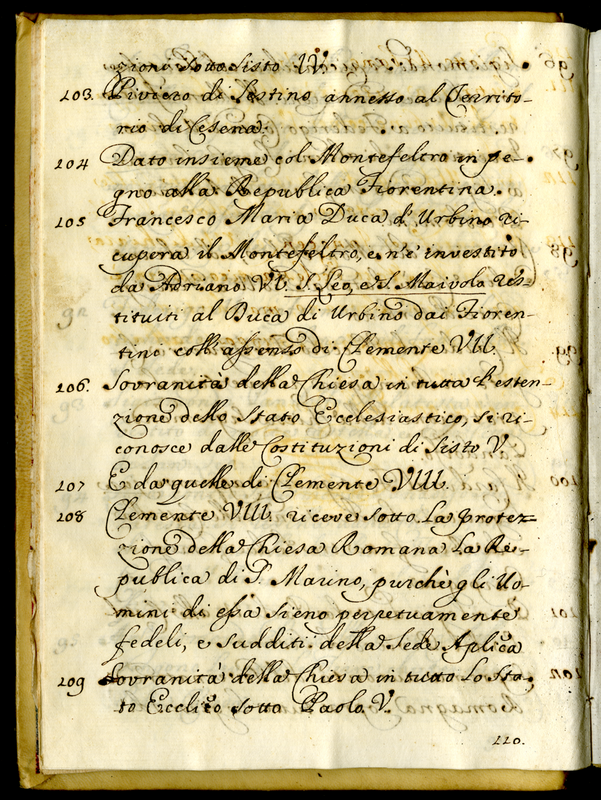 zioni sotto Sisto IV.
103. Piviero di Sestino annesso al Territo-
rio di Cesena.
104 Dato insieme col Montefeltro in pe-
gno alla Republica Fiorentina.
105 Francesco Maria Duca d'Urbino ri-
cupera il Montefeltro, e n'è investito
da Adriano VI. S. Leo, e S. Maivolo res-
tituiti al Duca di Urbino dai Fioren-
tino coll'assenso di Clemente VII.
106. Sovranità della Chiesa in tutta l'esten-
zione dello Stato Ecclesiastico, si ri-
conosce dalle Costituzioni di Sisto V.
107 E da quelle di Clemente VIII.
108 Clemente VIII. riceve sotto la protez=
zione della Chiesa Romana la Re-
publica di S. Marino, purchè gli Uo-
mini di essa sieno perpetuamente
fedeli, e sudditi della Sede Aplica
109 Sovranità della Chiesa in tutto lo Sta-
to Ecclico sotto Paolo V.
110.